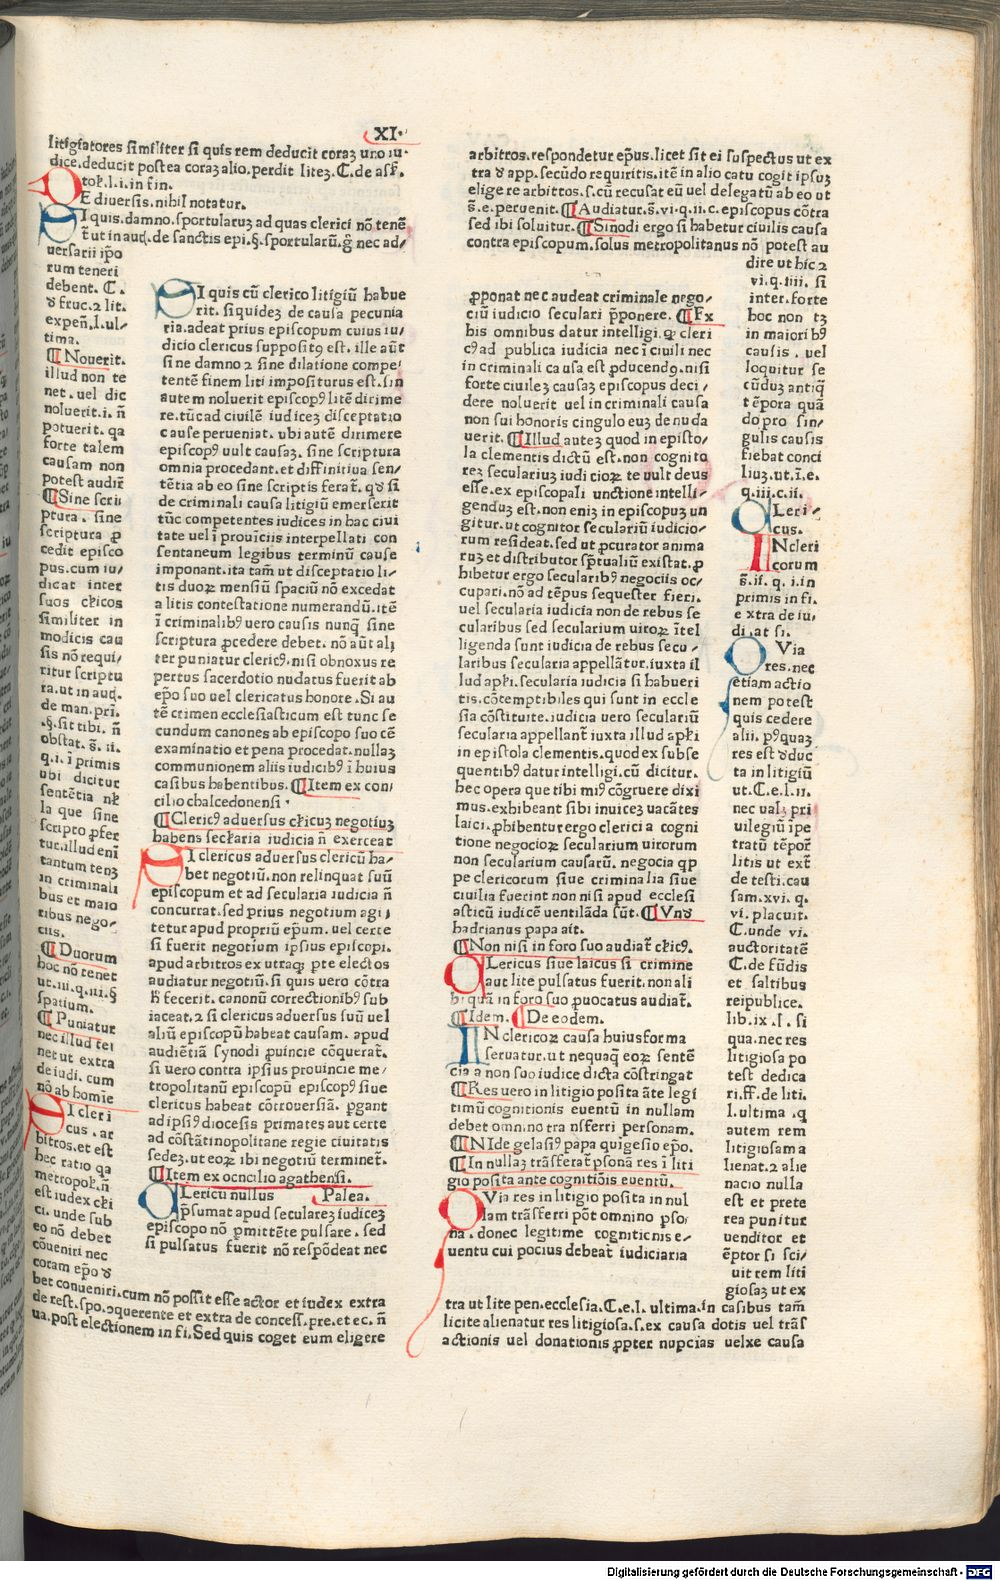 XI·
litigiatores similiter si quis rem deducit coraꝫ uno iu-
dice.deducit postea coraꝫ alio.perdit liteꝫ.
E diuersis.nihil notatur.
I quis.damno.sportularuꝫ ad quas clerici nō tenē
uersarii ipō
rum teneri
debent. C.
tima.
¶ Nouerit.
illud non te
net. uel dic
noluerit.i.n̄
potuerit. qa
forte talem
causam non
potest audir̄
¶ Sine scri
ptura. sine
scriptura ꝓ
cedit episco
pus.cum iu/
dicat inter
suos cƚicos
similiter in
modicis cau
sis nō requi/
ritur scriptu
de man.pri.
.§.sit tibi. n̄
q.i.i primis
ubi dicitur
la que sine
scripto ꝓfer
tur.illud eni
tantum tenꝫ
in criminali
bus et maio
ribus nego/
ciis.
¶ Duorum
hoc nō tenet
ut.iii.q.iii.§
spatium.
¶ Puniatur
nec illud tei
net ut extra
de iudi. cum
nō ab homie
I cleri
cus . ar
bitros.et est
hec ratio qa
metropol.n̄
est iudex cƚi
ci. unde sub
eo nō debet
cōueniri nec
coram epō ꝺ
bet conueniri.cum nō possit esse actor et iudex extra
ua.post electionem in fi.Sed quis coget eum eligere
I quis cū clerico litigiū habue
rit. siquideꝫ de causa pecunia
ria.adeat prius episcopum cuius iu/
dicio clericus supposit9 est. ille aūt
sine damno 2 sine dilatione compe/
tentē finem liti impositurus est.sin
autem noluerit episcop9 litē dirime
re.tūc ad ciuilē iudiceꝫ disceptatio
cause perueniat. ubi autē dirimere
episcop9 uult causaꝫ. sine scriptura
omnia procedant.et diffinitiua sen/
tētia ab eo sine scriptis ferat̄. qꝺ si
de criminali causa litigiū emerserit
tūc competentes iudices in hac ciui
tate uel ī prouīciis interpellati con
sentaneum legibus terminū cause
imponant.ita tam̄ ut disceptatio li/
tis duoꝝ mensiū spaciū nō excedat
a litis contestatione numerandū.itē
ī criminalib9 uero causis nunq̄ sine
scriptura ꝓcedere debet. nō aūt al;
ter puniatur cleric9.nisi obnoxus re
pertus sacerdotio nudatus fuerit ab
ep̄o suo uel clericatus honore .Si au
tē crimen ecclesiasticum est tunc se
cundum canones ab episcopo suo cē
examinatio et pena procedat.nullaꝫ
communionem aliis iudicib9 ī huius
casibus habentibus. ¶Item ex con/
cilio chalcedonensi ·
¶Cleric9 aduersus cƚicuꝫ negotiuꝫ
habens secƚaria iudicia n̄ exerceat
I clericus aduersus clericū ha/
bet negotiū.non relinquat suū
episcopum et ad secularia iudicia n̄
concurrat.sed prius negotium agi;
tetur apud propriū ep̄um.uel certe
si fuerit negotium ipsius episcopi.
apud arbitros ex utraq; pte electos
audiatur negotiū.si quis uero cōtra
h̄ fecerit. canonū correctionib9 sub
iaceat.2 si clericus aduersus suū uel
aliū episcopū habeat causam. apud
audiētiā synodi ꝓuincie cōquerat̄.
si uero contra ipsius prouincie me/
tropolitanū episcopū episcop9 siue
clericus habeat cōtrouersiā. pgant
ad ipsi9 diocesis primates aut certe
ad cōstātinopolitane regie ciuitatis
sedeꝫ.ut eoꝝ ibi negotiū terminet̄.
¶Item ex ocncilio agathensi.
Lericū nullus Palea.
p̄sumat apud seculareꝫ iudiceꝫ
episcopo nō ꝓmittēte pulsare. sed
si pulsatus fuerit nō respōdeat nec
arbitros.respondetur ep̄us.licet sit ei suspectus ut ex
tra ꝺ app. secūdo requiritis.itē in alio catu cogit ipsuꝫ
eligere arbittos.s.cū recusat eū uel delegatū ab eo ut
s̄.e.peruenit. ¶Audiatur.s̄.vi.q.ii.c.episcopus cōtra
sed ibi soluitur. ¶Sinodi ergo si habetur ciuilis causa
contra episcopum.solus metropolitanus nō potest au
dire ut hic 2
vi.q.iiii. si
inter.forte
hoc non tꝫ
in maiorib9
causis . uel
loquitur se
cūduꝫ antiq̄
tēpora quā
do pro sin/
gulis causis
fiebat conci
liuꝫ.ut.i.e.
q.iii.c.ii.
Leri/
cus.
N cleri
corum
s̄.ii. q. i.in
primis in fi.
e xtra de iu/
di.at si.
Via
res.nec
etiam actio
nem potest
quis cedere
alii. p9quaꝫ
res est ꝺduc
ta in litigiū
ut. C.e.l.ii.
nec ualꝫ pri
uilegiū īpe
tratū tēpor̄
litis ut ext̄
de testi.cau
sam.xvi. q.
vi. placuit.
C.unde vi.
auctoritatē
C.de fūdis
et saltibus
reipublice.
lib.ix.l. si
qua.nec res
litigiosa po
test dedica
ri.ff.de liti.
l.ultima .q
autem rem
litigiosam a
lienat.2 alie
nacio nulla
est et prete
rea punitur
uenditor et
ēptor si sci/
uit rem liti
giosaꝫ ut ex
ꝓponat nec audeat criminale nego/
ciū iudicio seculari p̄ponere. ¶Ex
his omnibus datur intelligi. ꝙ cleri
c9 ad publica iudicia nec ī ciuili nec
in criminali ca usa est ꝓducendꝫ.nisi
forte ciuileꝫ causaꝫ episcopus deci/
dere noluerit uel in criminali causa
non sui honoris cingulo euꝫ denuda
uerit. ¶Illud auteꝫ quod in episto/
la clementis dictū est.non cognito
reꝫ seculariuꝫ iudi cioꝝ te uult deus
esse.ex episcopali unctione intelli/
genduꝫ est.non eniꝫ in episcopuꝫ un
gitur.ut cognitor seculariū iudicio/
rum resideat.sed ut ꝓcurator anima
ruꝫ et distributor sp̄tualiū exsistat.ꝓ
hibetur ergo secularib9 negociis oc/
cupari.nō ad tēpus sequester fieri.
uel secularia iudicia non de rebus se
cularibus sed secularium uiroꝝ ītel
ligenda sunt iudicia de rebus secu/
laribus secularia appellātur.iuxta il
lud apƚi.secularia iudicia si habueri
tis.cōtemptibiles qui sunt in eccle
sia cōstituite.iudicia uero seculariū
secularia appellant̄ iuxta illud apƚi
in epistola clementis.quodex subse
quentib9 datur intelligi.cū dicitur.
hec opera que tibi mi9 cōgruere dixi
mus.exhibeant sibi inuiceꝫ uacātes
laici.ꝓhibentur ergo clerici a cogni
tione negocioꝝ secularium uirorum
non secularium causarū. negocia qꝑ
pe clericorum siue criminalia siue
ciuilia fuerint non nisi apud ecclesi
asticū iudicē uentilāda sūt. ¶Vnꝺ
hadrianus papa ait.
¶Non nisi in foro suo audiat̄ cƚic9.
Lericus siue laicus si crimine
aut lite pulsatus fuerit.non ali
bi quā in foro suo ꝓuocatus audiat̄.
¶Idem. ¶De eodem.
N clericoꝝ causa huius forma
seruatur.ut nequaq̄ eoꝝ sentē
cia a non suo iudice dicta cōstringat
¶Res uero in litigio posita āte legi
timū cognitionis euentū in nullam
debet omnino tra nsferri personam.
¶NIde gelasi9 papa quigesio ep̄o.
¶In nullaꝫ trāsferat̄ psonā res ī liti
gio posita ante cognitiōis euentū.
Via res in litigio posita in nul
lam trāsferri pōt omnino pso
na. donec legitime cognicticnis e/
uentu cui pocius debeat̄ iudiciaria
tra ut lite pen.ecclesia.C.e.l. ultima.in casibus tam̄
licite alienatur res litigiosa.s.ex causa dotis uel trās
actionis uel donationis ꝓpter nupcias uelxe causa
Digitalisierung gefördert durch die Deutsche Forschungsgemeinschaft - DFG